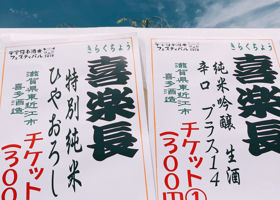 フェスティバル
きらくちょう
喜楽長
特別純米
ひやおろし
滋賀県東近江市
喜多酒造
チケット
(300
フェスティバル
きらくちょう
喜楽長
純米吟醸 生酒
辛口 プラス14
滋賀県東近江市
喜多酒造
チケット①
(300円